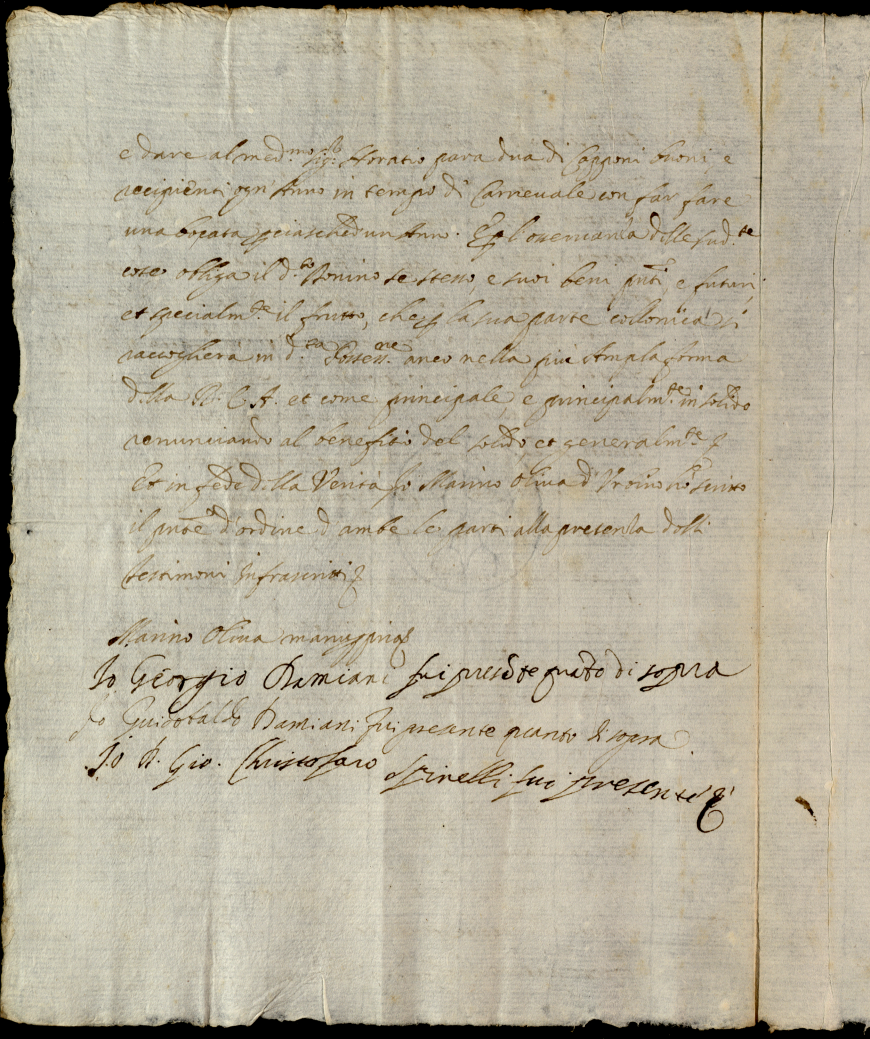 e dare al med.mo Sig.r Horatio para dua di Capponi buoni, e
recipienti ogn Anno in tempo di Carnevale con far fare
una bocata p ciaschedun Anno. Et p l'osservanza delle sud.te
cose obliga il d.to Bonino se stesso, e suoi beni pnti, e futuri,
et specialm.te il frutto, che p la sua parte collonica si
raccoglierà in d.ta Possess.ne anco nella più Ampla forma
della R. C. A. et come principale, e principalm.te in solido
renunciando al benefitio del solido et generalm.te
Et in fede della Verità Io Marino Oliva d' scritto
il pnte d'ordine d'ambe le parti alla presenza delli
testimoni Infrascritti
Marino Oliva manu ppria
Io Georgio Damiani fui presete quato di sopra
Io Guidobaldo Damiani fui presente quanto di sopra.
Io D. Gio. Christofaro Spinelli fui presente